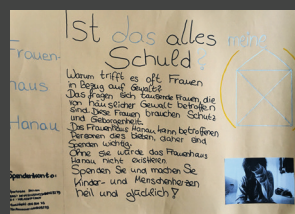 Ist das alles
meine
Schuld?
Frauen-
haus
Hanau
Warum trifft es oft Frauen
in Bezug auf Gewalt?
Das fragen sich tausende Frauen die
von häuslicher Gewalt betroffen
sind. Diese Frauen brauchen Schutz
und Geborgenheit.
Das Frauenhaus Hanau kann betroffenen
Personen dies bieten, daher sind
Spenden wichtig.
Ohne sie würde das Frauenhaus
Hanau nicht existieren.
Spenden Sie und machen Sie
Kinder- und Menschenherzen
heil und glücklich!
Spendenkonto: